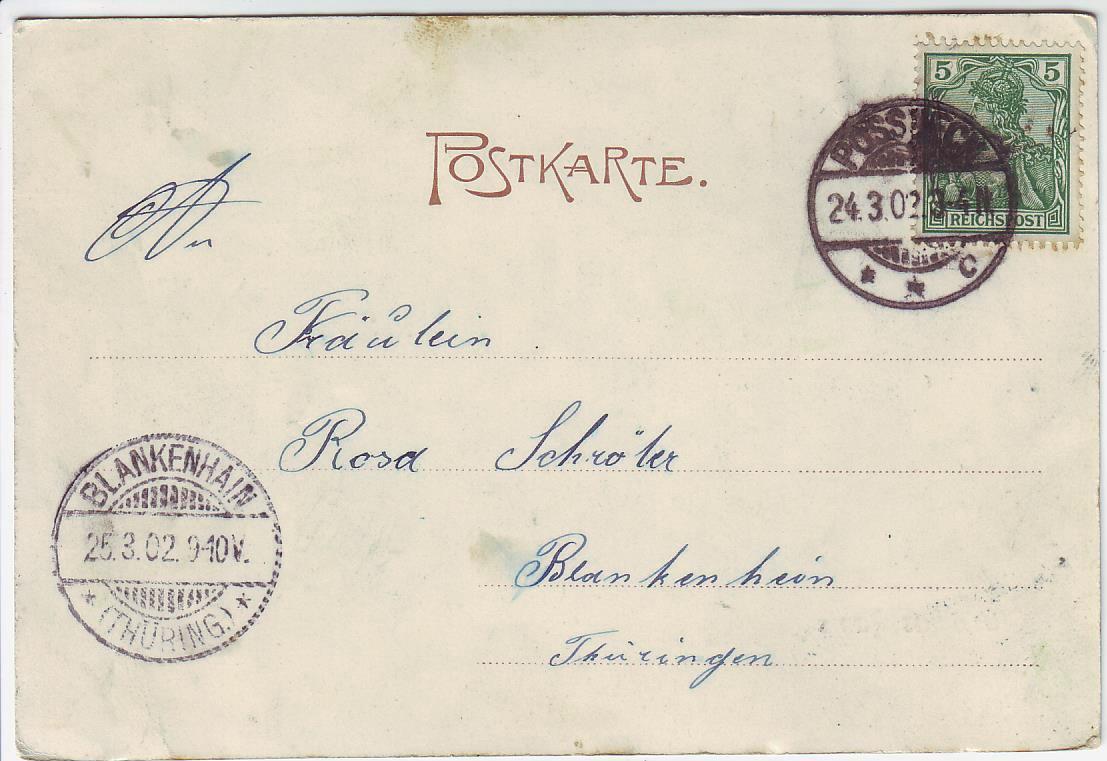 5 5
POSTKARTE.
PÖSSNECK
24.3.02. 3-4 N
REICHSPOST
C
An
Fräulein
Rosa Schröter
BLANKENHAIN
25.3.02. 9-10 V.
(THÜRING.)
Blankenhain
Thüringen